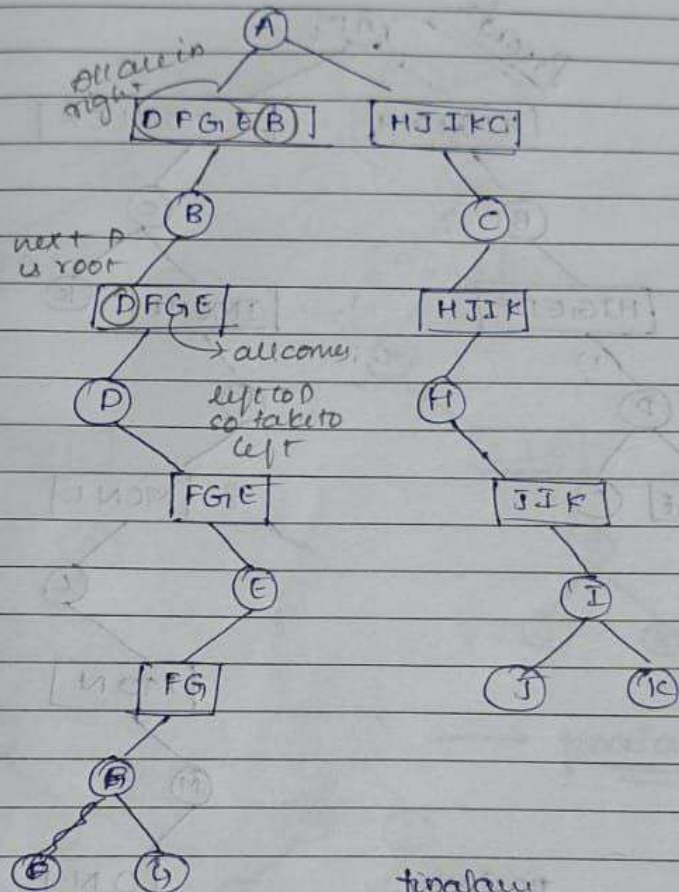 A
All are in
right
[DFGEB] [HJIKC]
B C
next D
is root
[DFGE] [HJIK]
all comes
D left to D H
so take to
left
[FGE] [JIK]
E I
[FG] J K
G